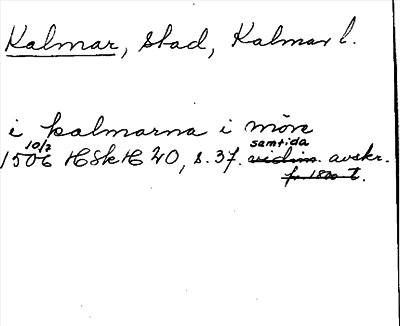 Kalmar, stad, Kalmar l.
i kalmarna i möre
10/7 samtida
1506 HSkH 20, s. 37. vidim. avskr.
fr. 1800 t.